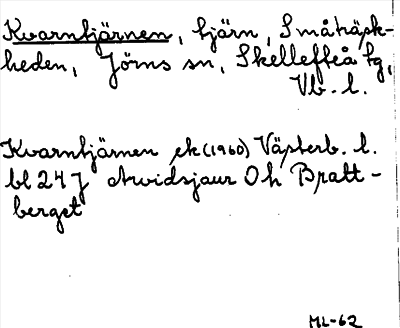 Kvarntjärnen, tjärn, Småträsk-
heden, Jörns sn, Skellefteå tg,
Vb. l.
Kvarntjärnen ek (1960) Västerb. l.
bl 24 J Arvidsjaur Oh Bratt-
berget
ML-62